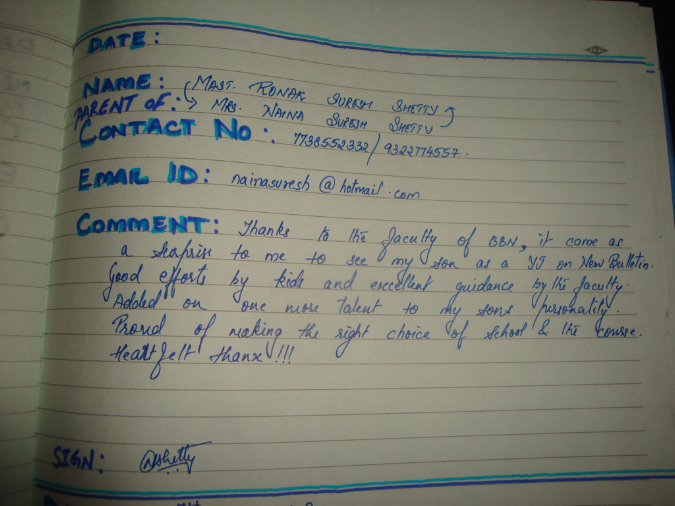 DATE:
NAME: (MAST. RONAK SURESH SHETTY)
PARENT OF: → MRS. NAINA SURESH SHETTY
CONTACT NO: 7738552332/9322774557.
EMAIL ID: nainasuresh@hotmail.com
COMMENT: Thanks to the faculty of BBN, it came as
a suprise to me to see my son as a YJ on New Bulletin.
Good efforts by kids and excellent guidance by the faculty.
Added on one more talent to my sons personality.
Proud of making the right choice of school & the course.
Heartfelt thanx!!!
SIGN: Shetty